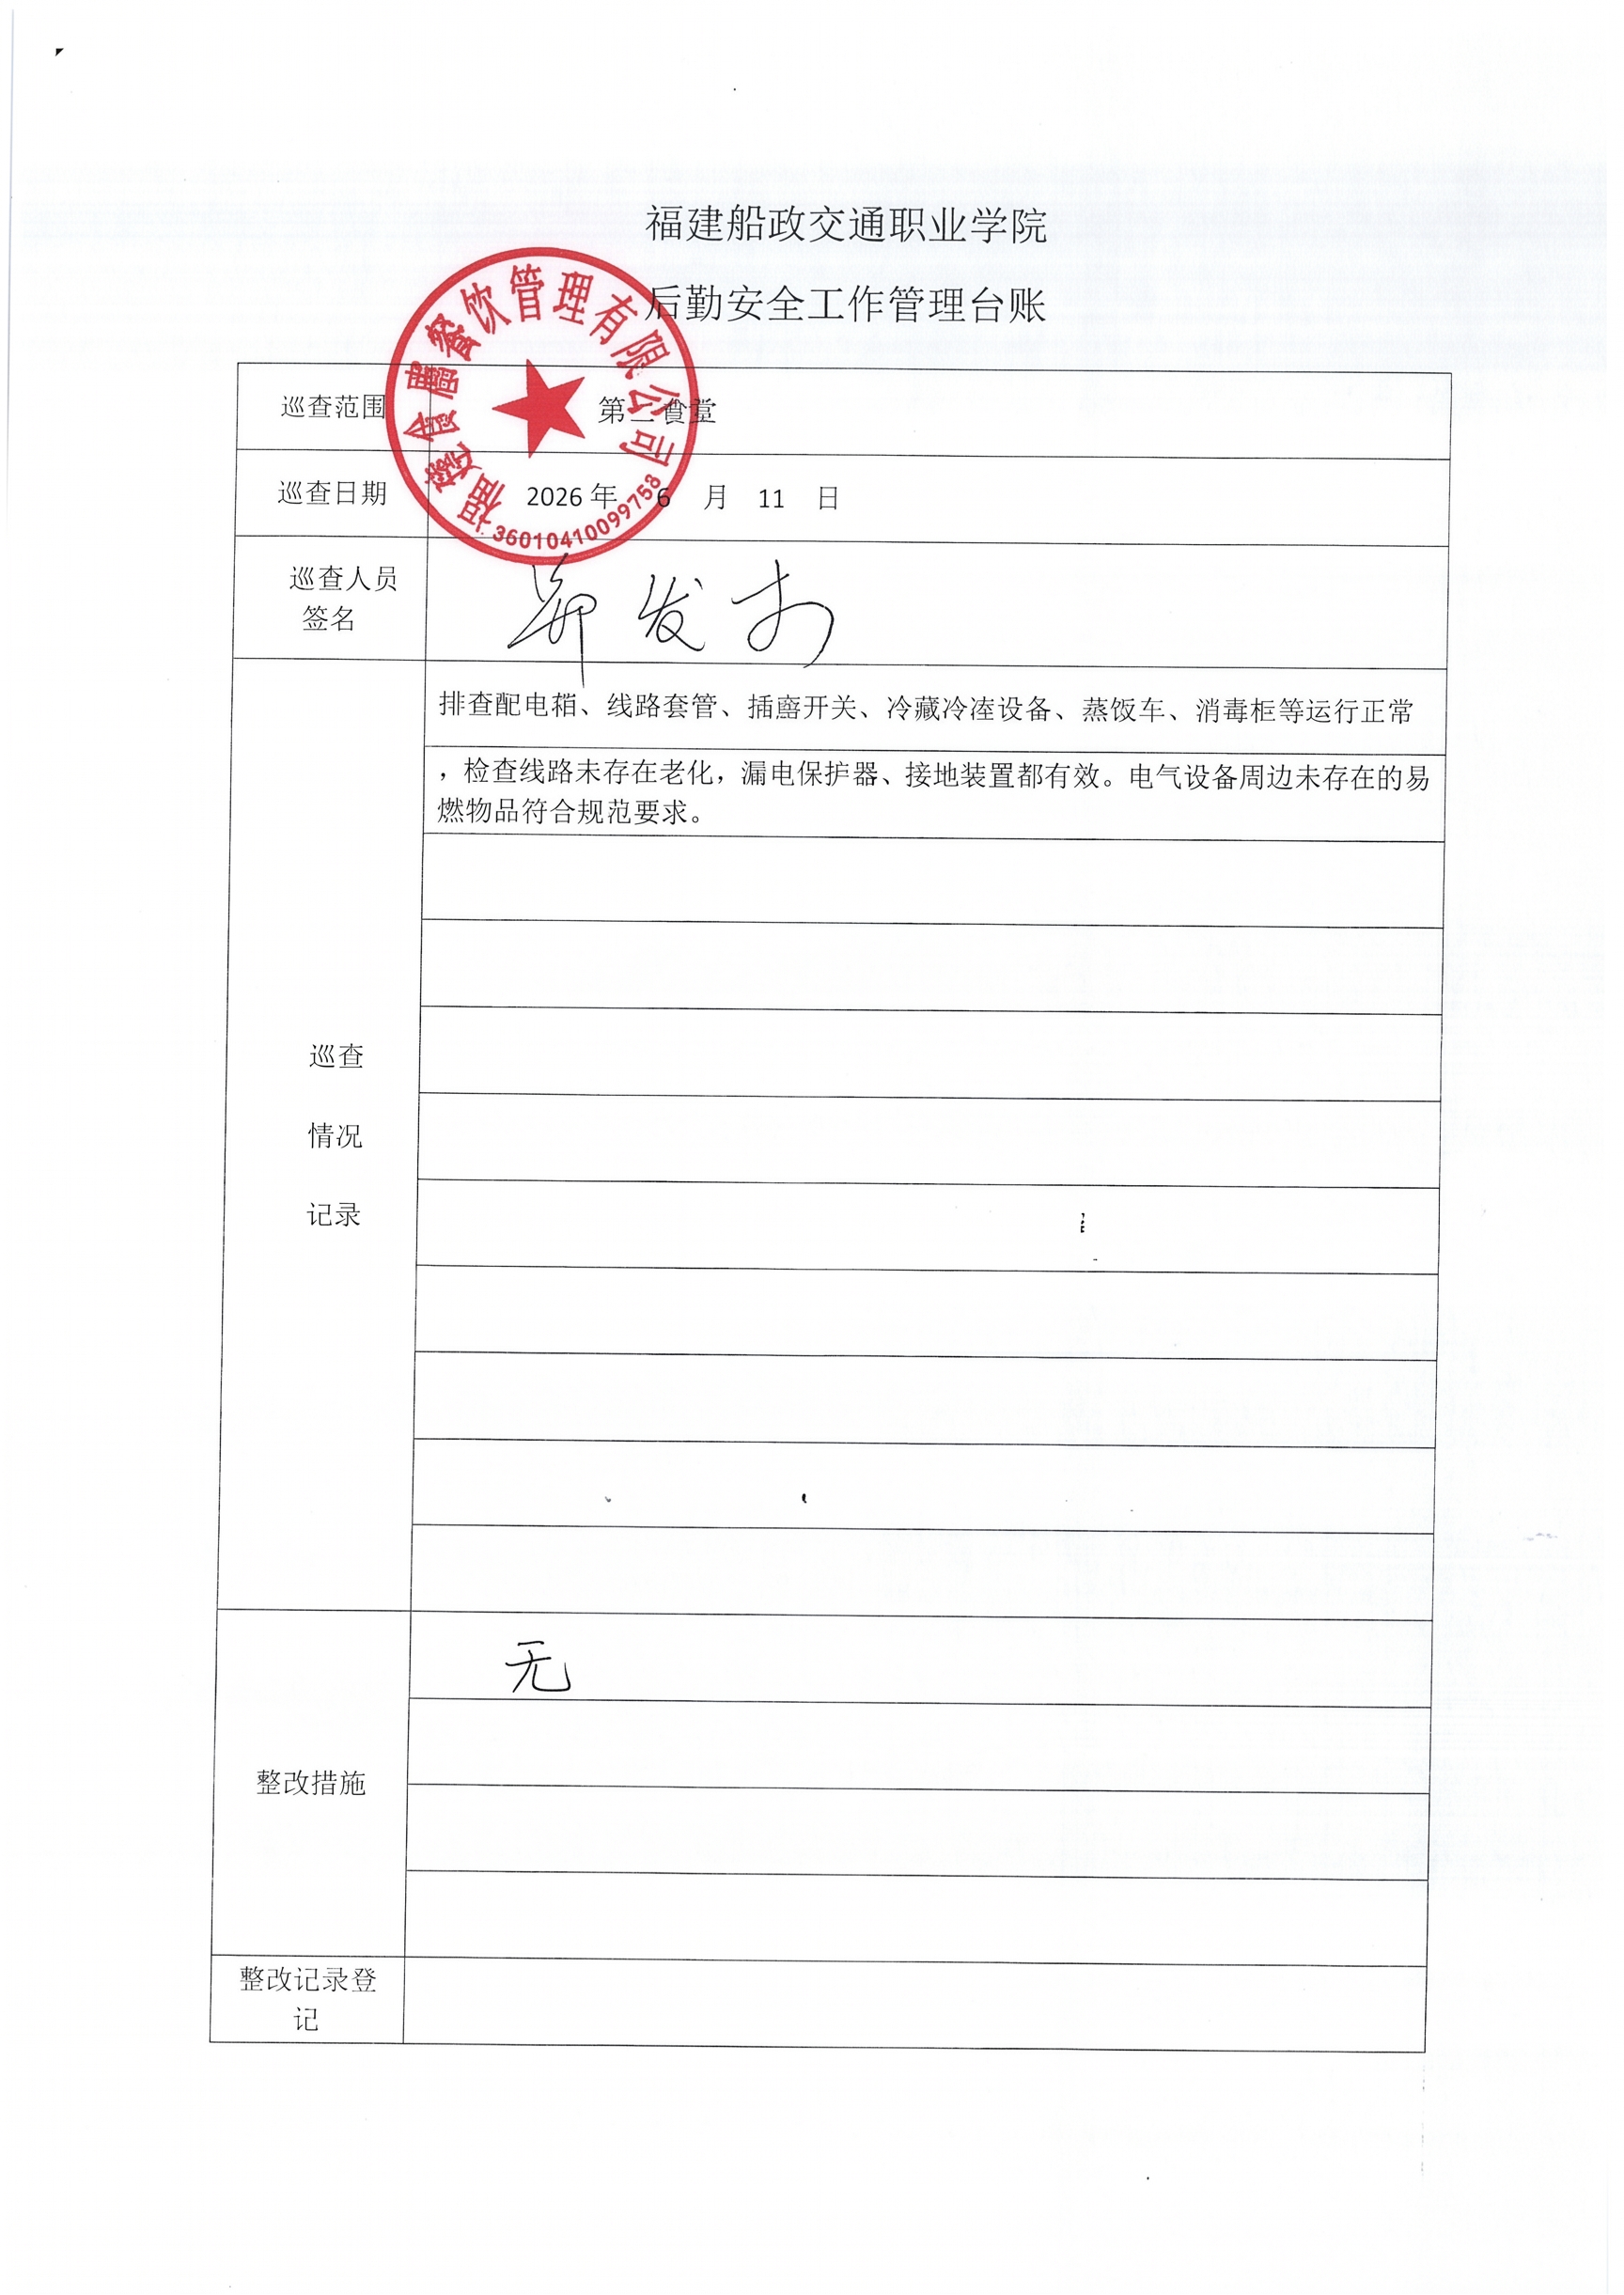 福建船政交通职业学院
后勤安全工作管理台账
餐饮管理有限公司
36010410099758
巡查范围 第二食堂
巡查日期 2026 年 6 月 11 日
巡查人员
签名
郑发
巡查
情况
记录
排查配电箱、线路套管、插座开关、冷藏冷冻设备、蒸饭车、消毒柜等运行正常
，检查线路未存在老化，漏电保护器、接地装置都有效。电气设备周边未存在的易
燃物品符合规范要求。
整改措施
无
整改记录登
记